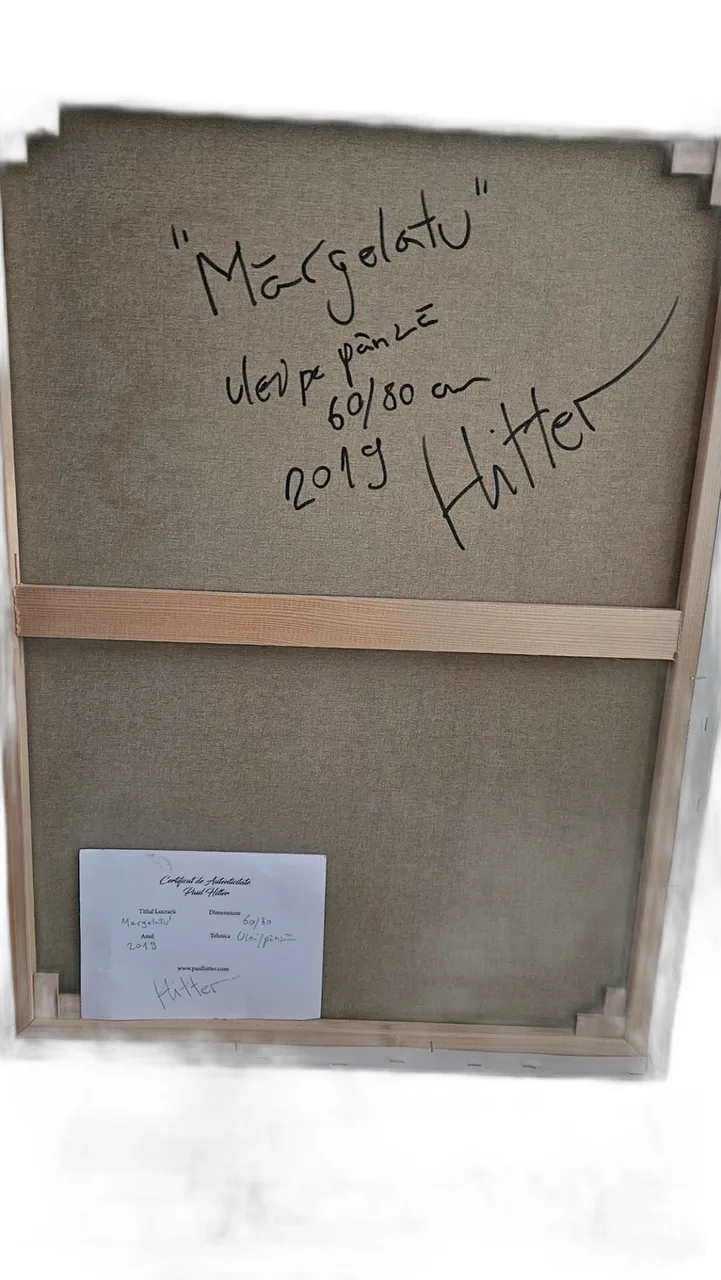 "Mărgelatu"
Ulei pe pânză
60/80 cm
2019 Hitter
Certificat de Autenticitate
Paul Hitter
Titlul Lucrarii Dimensiune
Margelatu" 60/80
Anul Tehnica Ulei/pânză
2019
www.paulhitter.com
Hitter